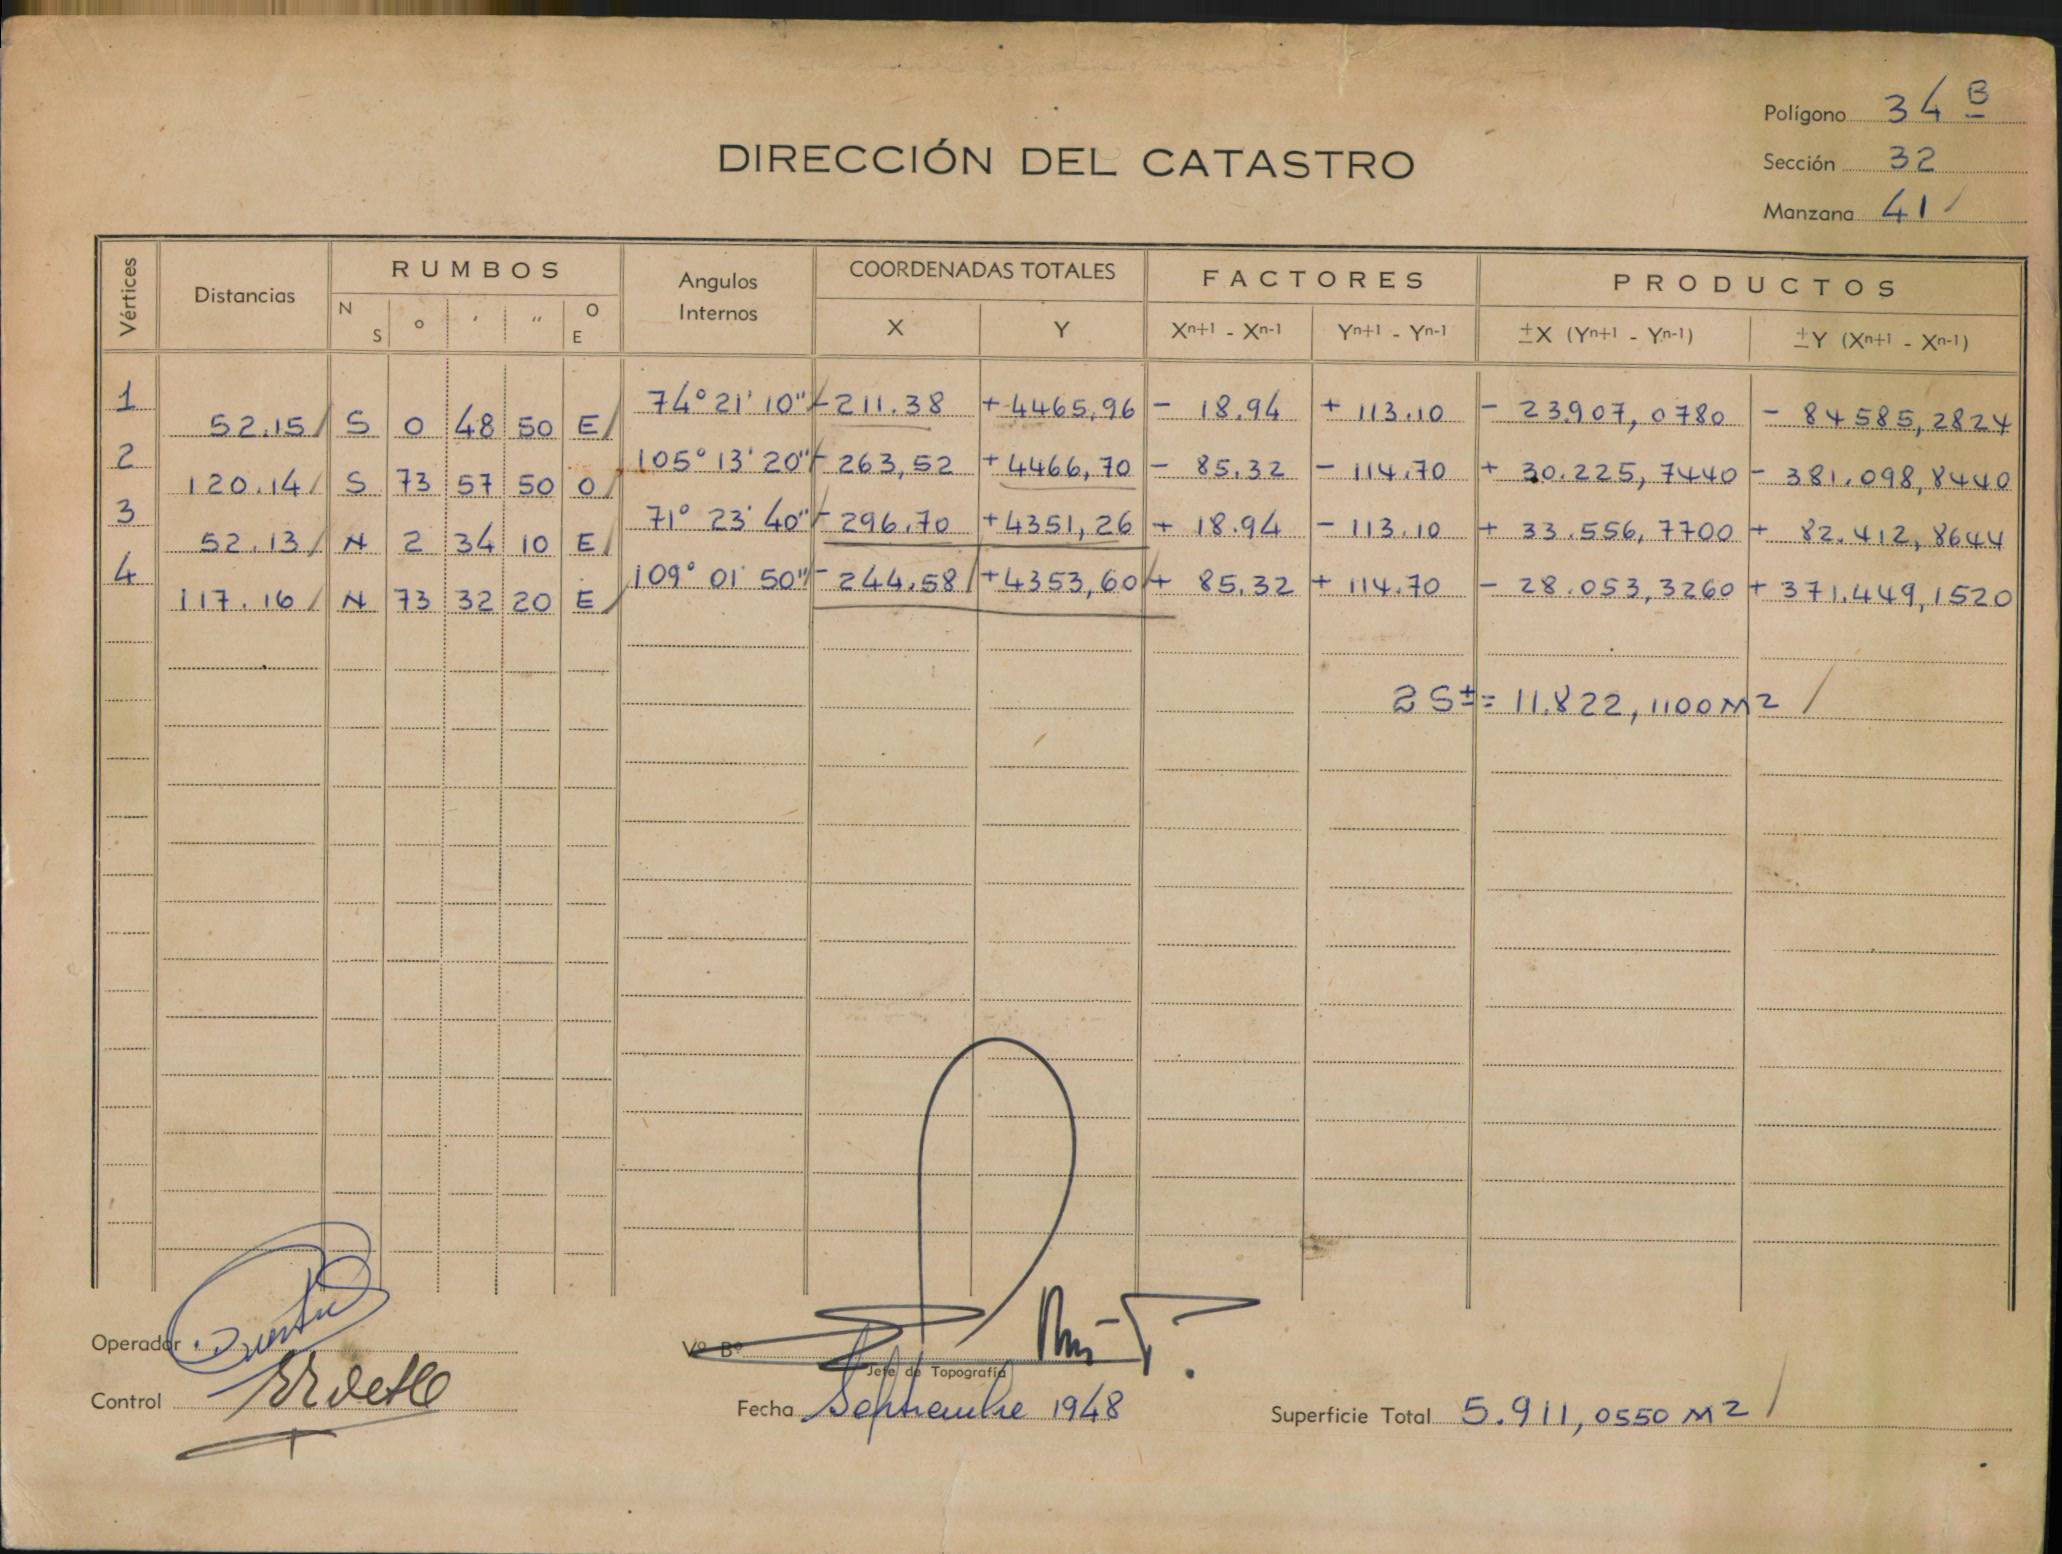 Polígono 34 B
DIRECCIÓN DEL CATASTRO
Sección 32
Manzana 41
Vértices Distancias RUMBOS Angulos Internos COORDENADAS TOTALES FACTORES PRODUCTOS
N S ° ' '' O E X Y Xn+1 - Xn-1 Yn+1 - Yn-1 ±X (Yn+1 - Yn-1) ±Y (Xn+1 - Xn-1)
1 74° 21' 10" -211.38 +4465,96 - 18.94 + 113.10 - 23.907,0780 - 84585,2824
52.15 S 0 48 50 E
2 105° 13' 20" - 263,52 +4466,70 - 85.32 - 114.70 + 30.225,7440 - 381.098,8440
120.14 S 73 57 50 O
3 71° 23' 40" - 296.70 +4351,26 + 18.94 - 113.10 + 33.556,7700 + 82.412,8644
52.13 N 2 34 10 E
4 109° 01' 50" - 244.58 +4353,60 + 85.32 + 114.70 - 28.053,3260 + 371.449,1520
117.16 N 73 32 20 E
2 S ± = 11.822,1100 M2
Operador
Vº Bº
Jefe de Topografía
Control
Fecha Septiembre 1948
Superficie Total 5.911,0550 M2